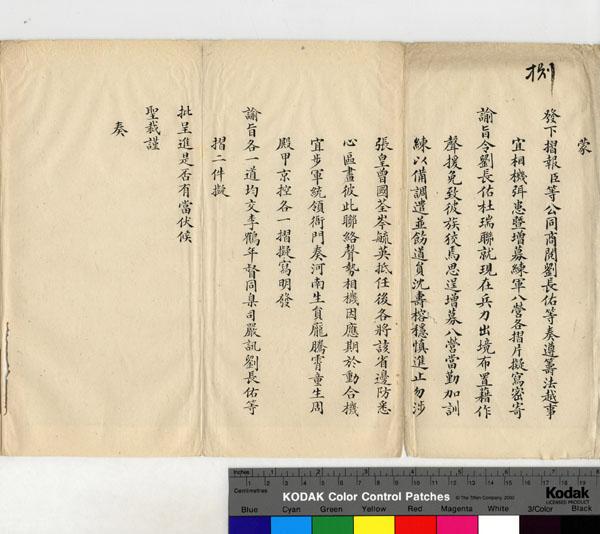 蒙
發下摺報臣等公同商閱劉長佑等奏遵籌法越事
宜相機弭患暨增募練軍八營各摺片擬寫密寄
諭旨令劉長佑杜瑞聯就現在兵力出境布置藉作
聲援免致彼族狡焉思逞增募八營當勤加訓
練以備調遣並飭道員沈壽榕穩慎進止勿涉
張皇曾國荃岑毓英抵任後各將該省邊防悉
心區畫彼此聯絡聲勢相機因應期於動合機
宜步軍統領衙門奏河南生員龐騰霄童生周
殿甲京控各一摺擬寫明發
諭旨各一道均交李鶴年督同臬司嚴訊劉長佑等
摺二件擬
批呈進是否有當伏候
聖裁謹
奏
Inches
Centimetres
KODAK Color Control Patches
© The Tiffen Company, 2000
Kodak
LICENSED PRODUCT
Blue Cyan Green Yellow Red Magenta White 3/Color Black